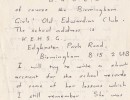 of the Birmingham
Girls' Old Edwardian Club.
The school address is
K.E.H.S.,
Edgbaston Park Road,
Birmingham B15 2UB
I will try to write a short
account for the school records
of some of her lessons which I
still remember. She was